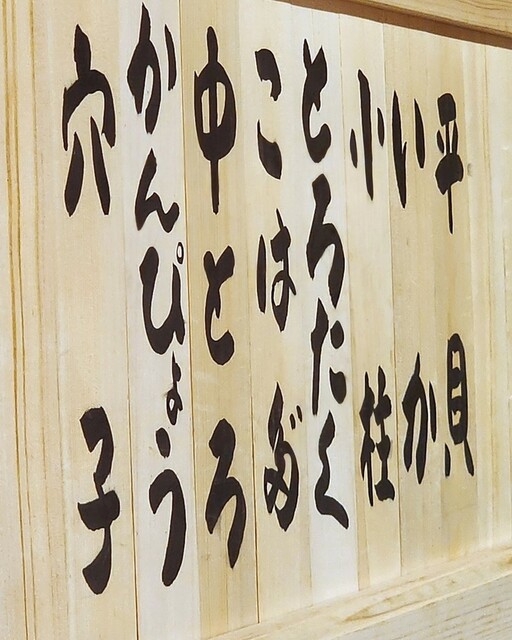 平貝
いか
小柱
とろたく
こはだ
中とろ
かんぴょう
穴子